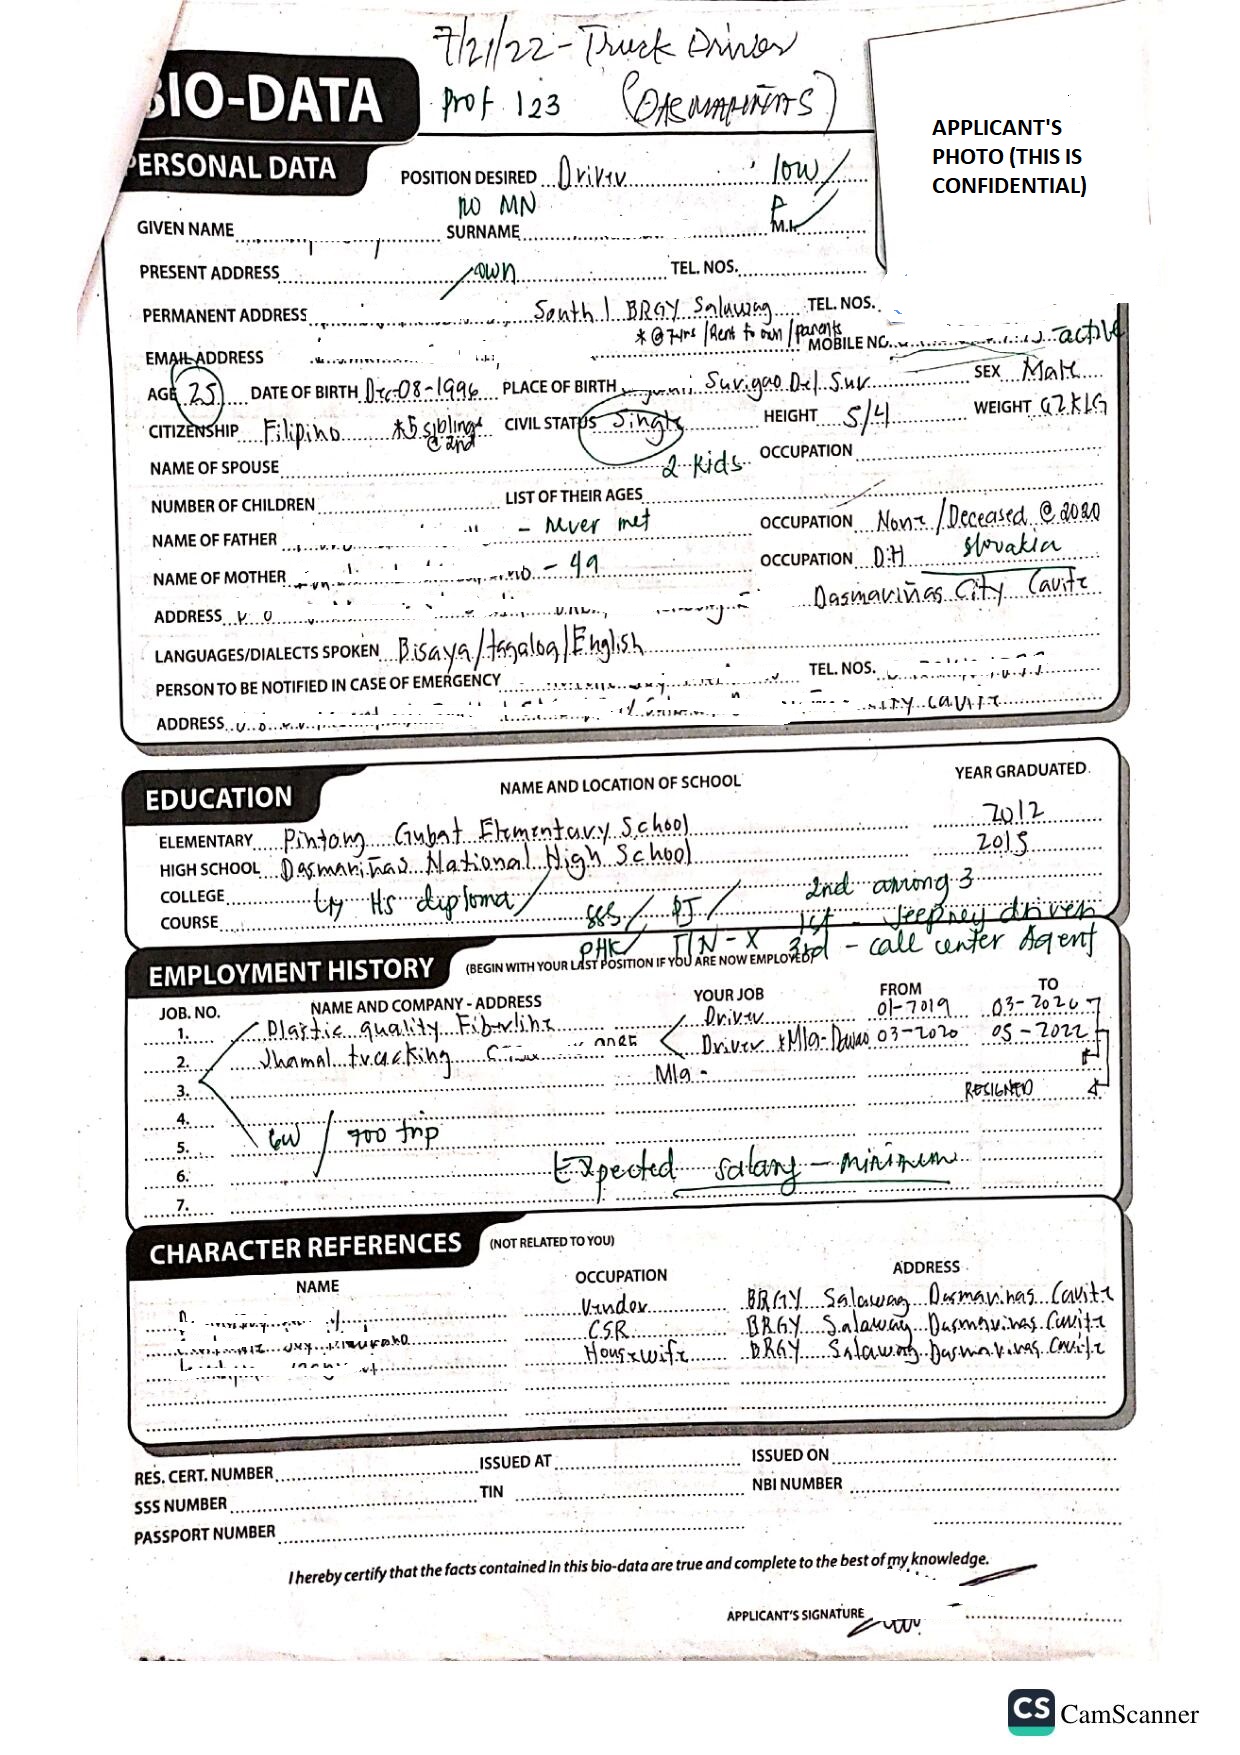 7/21/22 - Truck Driver
BIO-DATA
Prof 123 (DASMARIÑAS)
APPLICANT'S
PHOTO (THIS IS
CONFIDENTIAL)
PERSONAL DATA
POSITION DESIRED Driver low/
NO MN P
GIVEN NAME SURNAME M.I.
PRESENT ADDRESS /own TEL. NOS.
PERMANENT ADDRESS South 1 BRGY Salawag TEL. NOS.
* @ 7yrs /Rent to own /parents
EMAIL ADDRESS MOBILE NO. active
AGE 25 DATE OF BIRTH Dec-08-1996 PLACE OF BIRTH Surigao Del Sur SEX Male
CITIZENSHIP Filipino *5 siblings @ 2nd CIVIL STATUS Single HEIGHT 5/4 WEIGHT 62KLG
NAME OF SPOUSE 2 kids OCCUPATION
NUMBER OF CHILDREN LIST OF THEIR AGES
NAME OF FATHER - never met OCCUPATION None /Deceased @ 2020
NAME OF MOTHER - 49 OCCUPATION D.H Slovakia
ADDRESS Dasmariñas City Cavite
LANGUAGES/DIALECTS SPOKEN Bisaya/tagalog/English
PERSON TO BE NOTIFIED IN CASE OF EMERGENCY TEL. NOS.
ADDRESS CAVITE
EDUCATION NAME AND LOCATION OF SCHOOL YEAR GRADUATED
ELEMENTARY Pintong Gubat Elementary School 2012
HIGH SCHOOL Dasmariñas National High School 2015
COLLEGE HS diploma/ 2nd among 3
COURSE SSS/ PI/ 1st - Jeepney driver
PHK/ TIN-X 3rd - call center Agent
EMPLOYMENT HISTORY (BEGIN WITH YOUR LAST POSITION IF YOU ARE NOW EMPLOYED)
JOB. NO. NAME AND COMPANY - ADDRESS YOUR JOB FROM TO
1. Plastic quality Fiberline Driver 01-2019 03-2020
2. Jhamal trucking Driver *Mla-Davao 03-2020 05-2022
3. Mla - RESIGNED
4.
5. 6W / 700 trip
6. Expected salary - minimum
7.
CHARACTER REFERENCES (NOT RELATED TO YOU)
NAME OCCUPATION ADDRESS
Vendor BRGY Salawag Dasmarinas Cavite
CSR BRGY Salaway Dasmarinas Cavite
Housewife BRGY Salawag Dasmarinas Cavite
RES. CERT. NUMBER ISSUED AT ISSUED ON
SSS NUMBER TIN NBI NUMBER
PASSPORT NUMBER
I hereby certify that the facts contained in this bio-data are true and complete to the best of my knowledge.
APPLICANT'S SIGNATURE
CS CamScanner